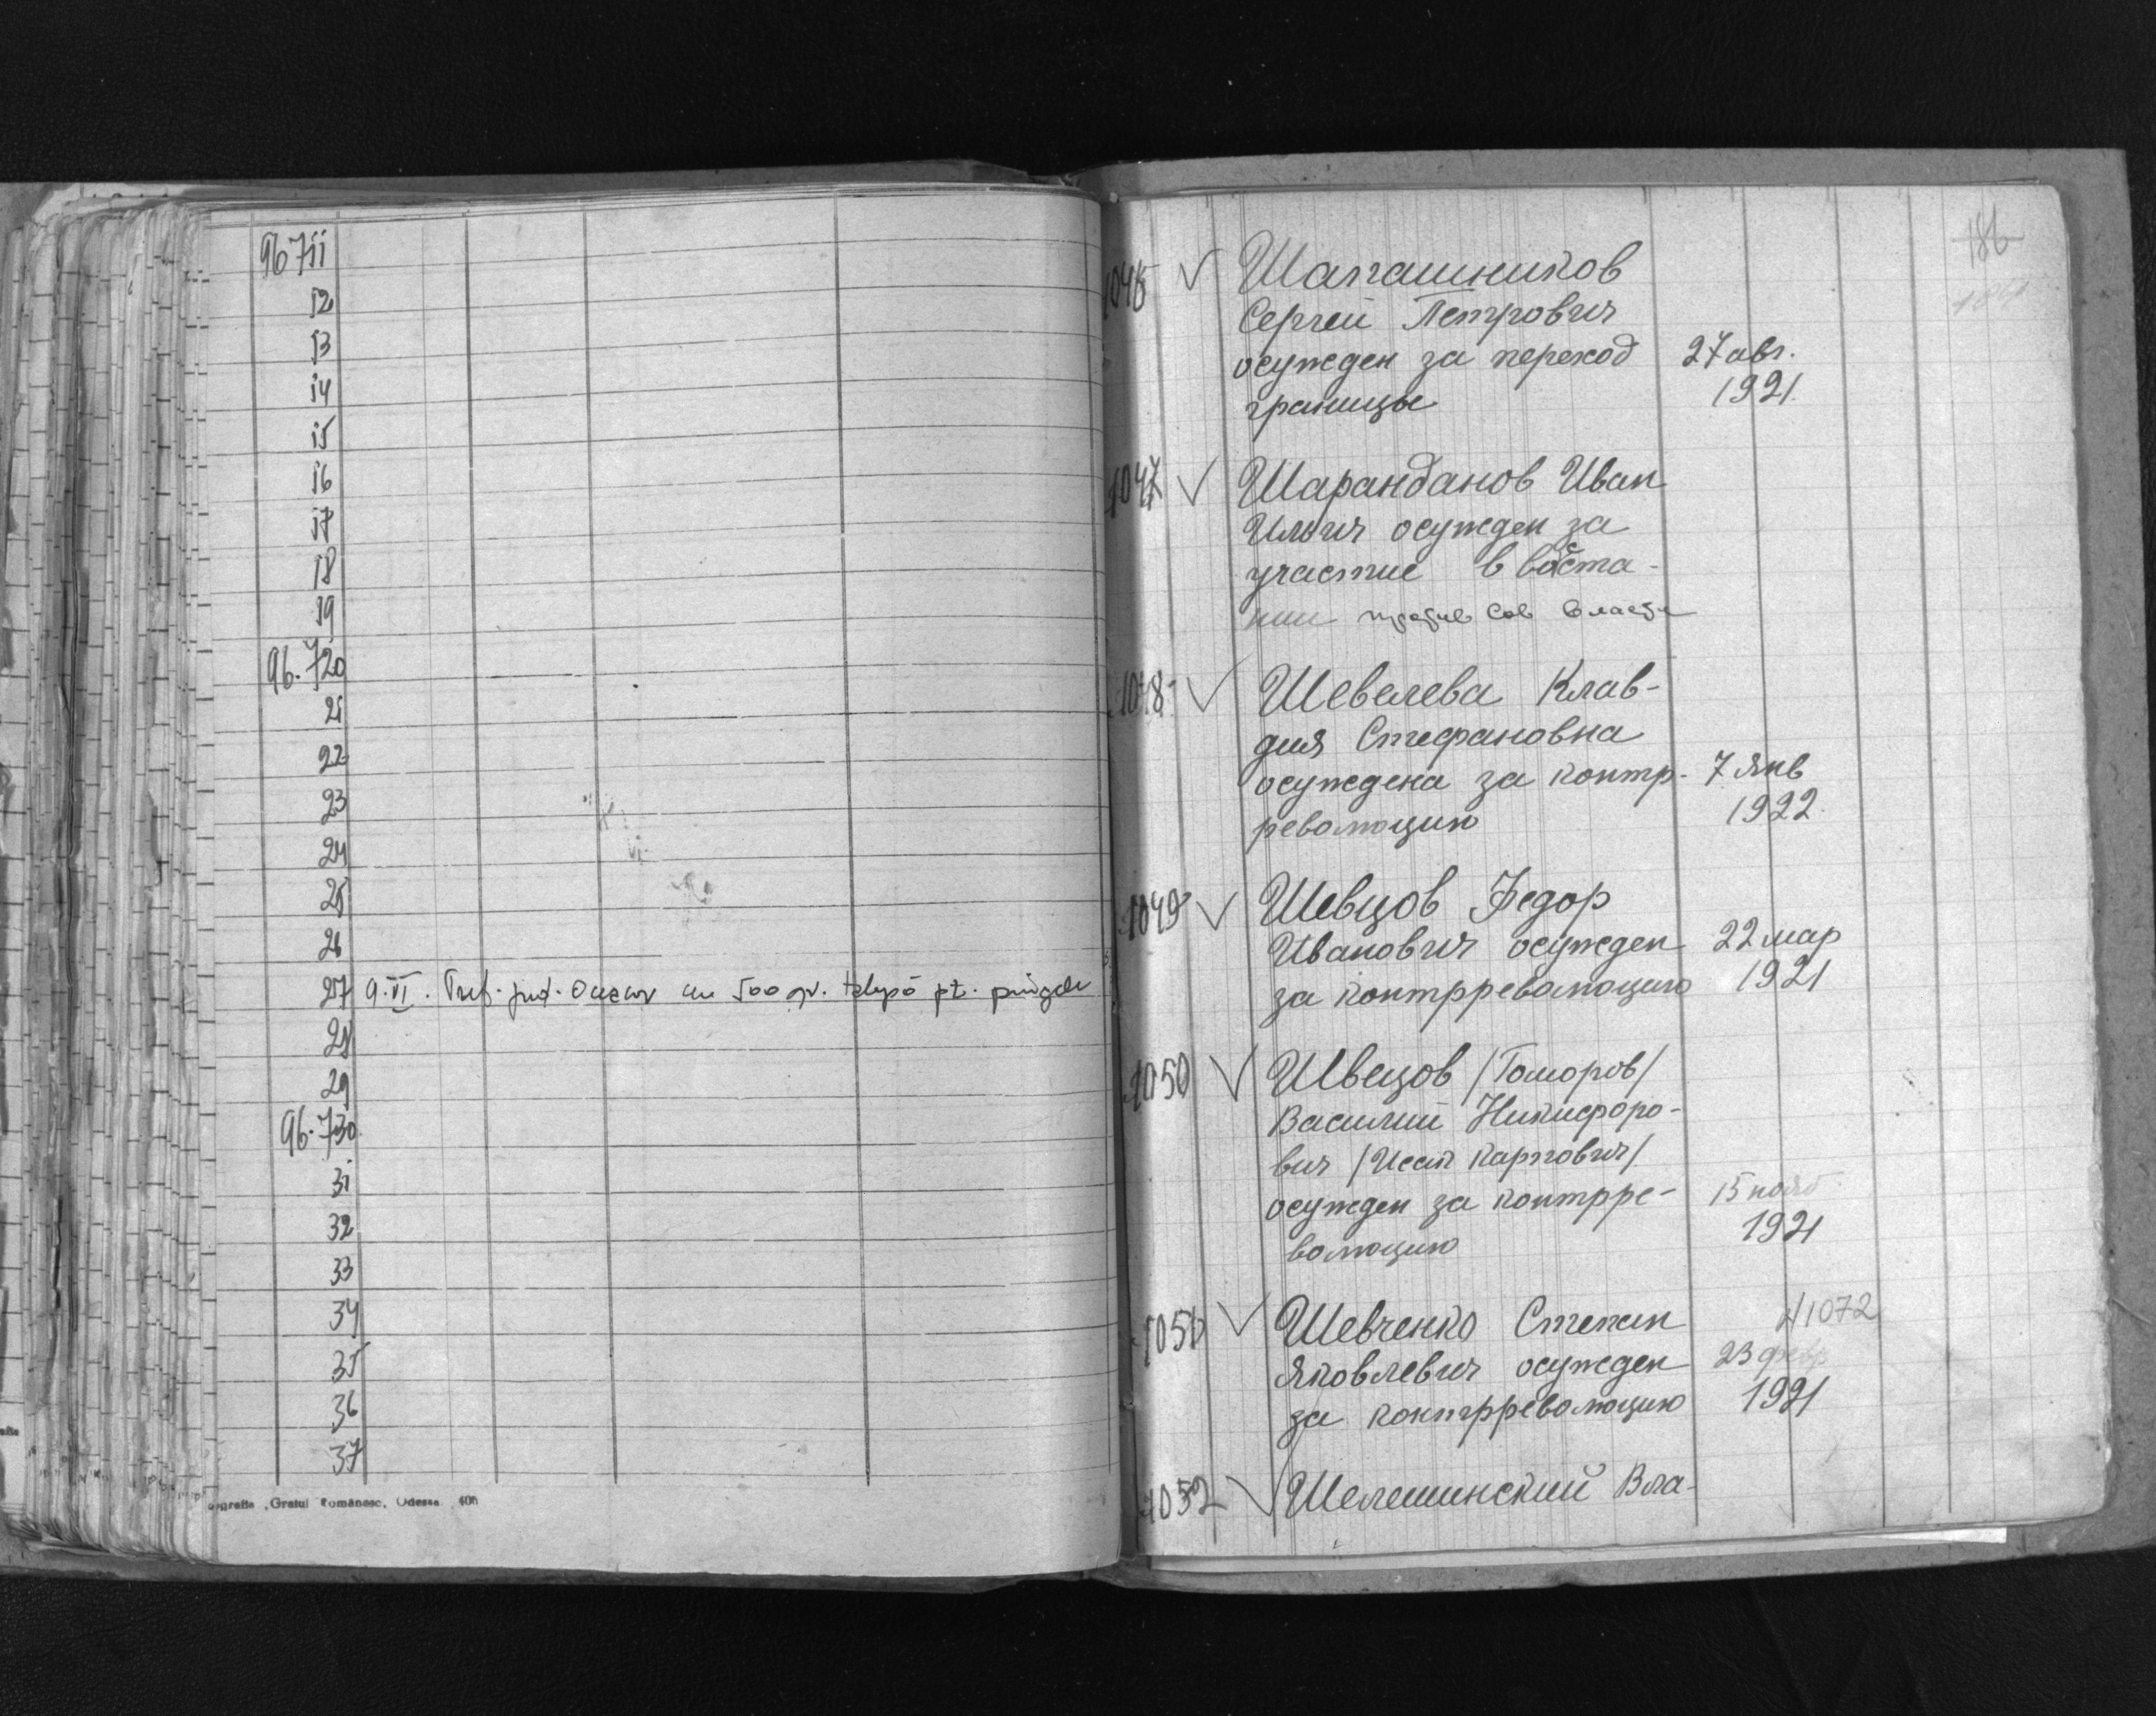 96711
12
13
14
15
16
17
18
19
96.720
21
22
23
24
25
26
27 9.VI. Pref. jud. Oceacov cu 500 gr. talpă pt. pingele
28
29
96.730
31
32
33
34
35
36
37
ografia „Graiul Românesc, Odessa 40
186
1046 Шапашников
Сергей Петрович
осужден за переход 27 авг.
границы 1921.
1047 Шаранданов Иван
Ильич осужден за
участие в восста-
нии против Сов власти
1048 Шевелева Клав-
дия Стефановна
осуждена за контр- 7 янв
революцию 1922
1049 Шевцов Федор
Иванович осужден 22 мар
за контрреволюцию 1921
1050 Швецов /Томоров/
Василий Никифоро-
вич /Исак Карпович/
осужден за контрре- 15 нояб
волюцию 1921
1051 Шевченко Степан 1072
Яковлевич осужден 23 февр
за контрреволюцию 1921
1052 Шелешинский Вла-